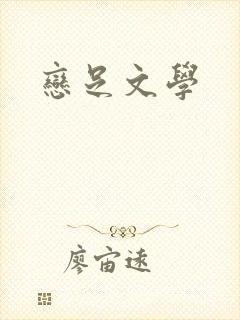 戀足文學
廖宙遠